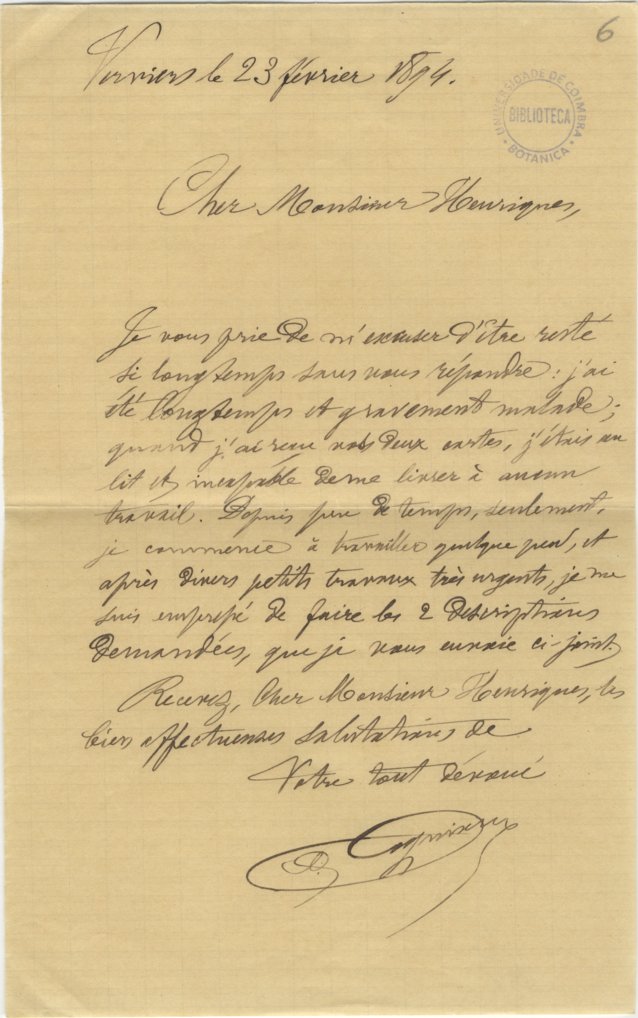 6
Verviers le 23 février 1894.
UNIVERSIDADE DE COIMBRA
BIBLIOTECA
BOTANICA
Cher Monsieur Henriques,
Je vous prie de m'excuser d'être resté
si longtemps sans vous répondre : j'ai
été longtemps et gravement malade ;
quand j'ai reçu vos deux cartes, j'étais au
lit et incapable de me livrer à aucun
travail. Depuis peu de temps, seulement,
je commence à travailler quelque peu, et
après divers petits travaux très urgents, je me
suis empressé de faire les 2 descriptions
demandées, que je vous envoie ci-joint.
Recevez, Cher Monsieur Henriques, les
bien affectueuses salutations de
Votre tout dévoué
A. Cogniaux